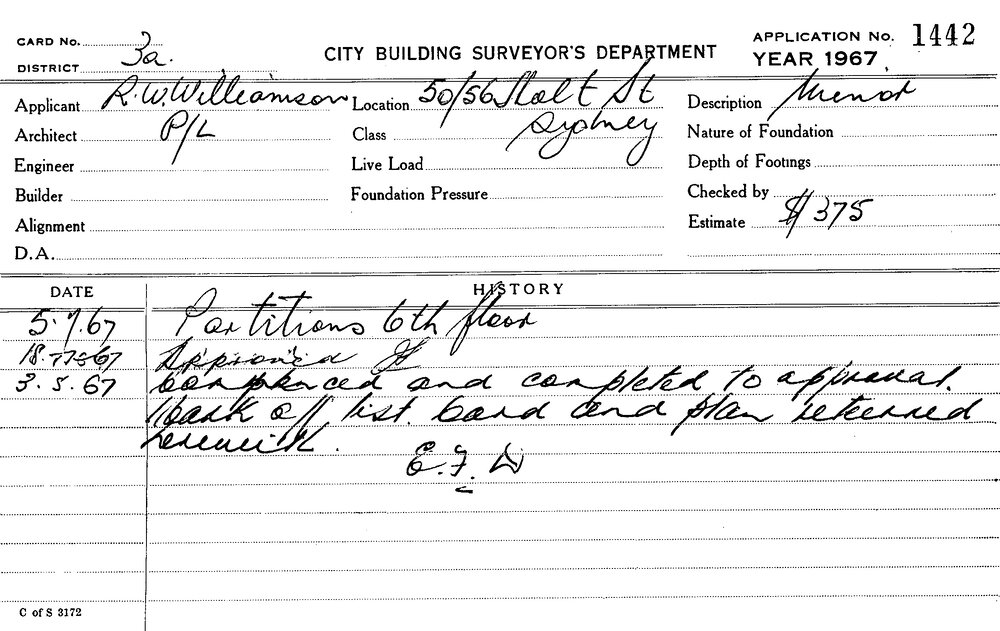 CARD No.
DISTRICT 3a.
CITY BUILDING SURVEYOR'S DEPARTMENT
APPLICATION No. 1442
YEAR 1967
Applicant R.W. Williamson
Location 50/56 Holt St
Description Minor
Architect P/L
Class Sydney
Nature of Foundation
Engineer
Live Load
Depth of Footings
Builder
Foundation Pressure
Checked by
Alignment
Estimate $375
D.A.
DATE HISTORY
5.7.67 Partitions 6th floor
18.7.67 Approved
3.5.67 Commenced and completed to approval.
Mark off list. Card and plan returned
herewith.
E.F.D
C of S 3172